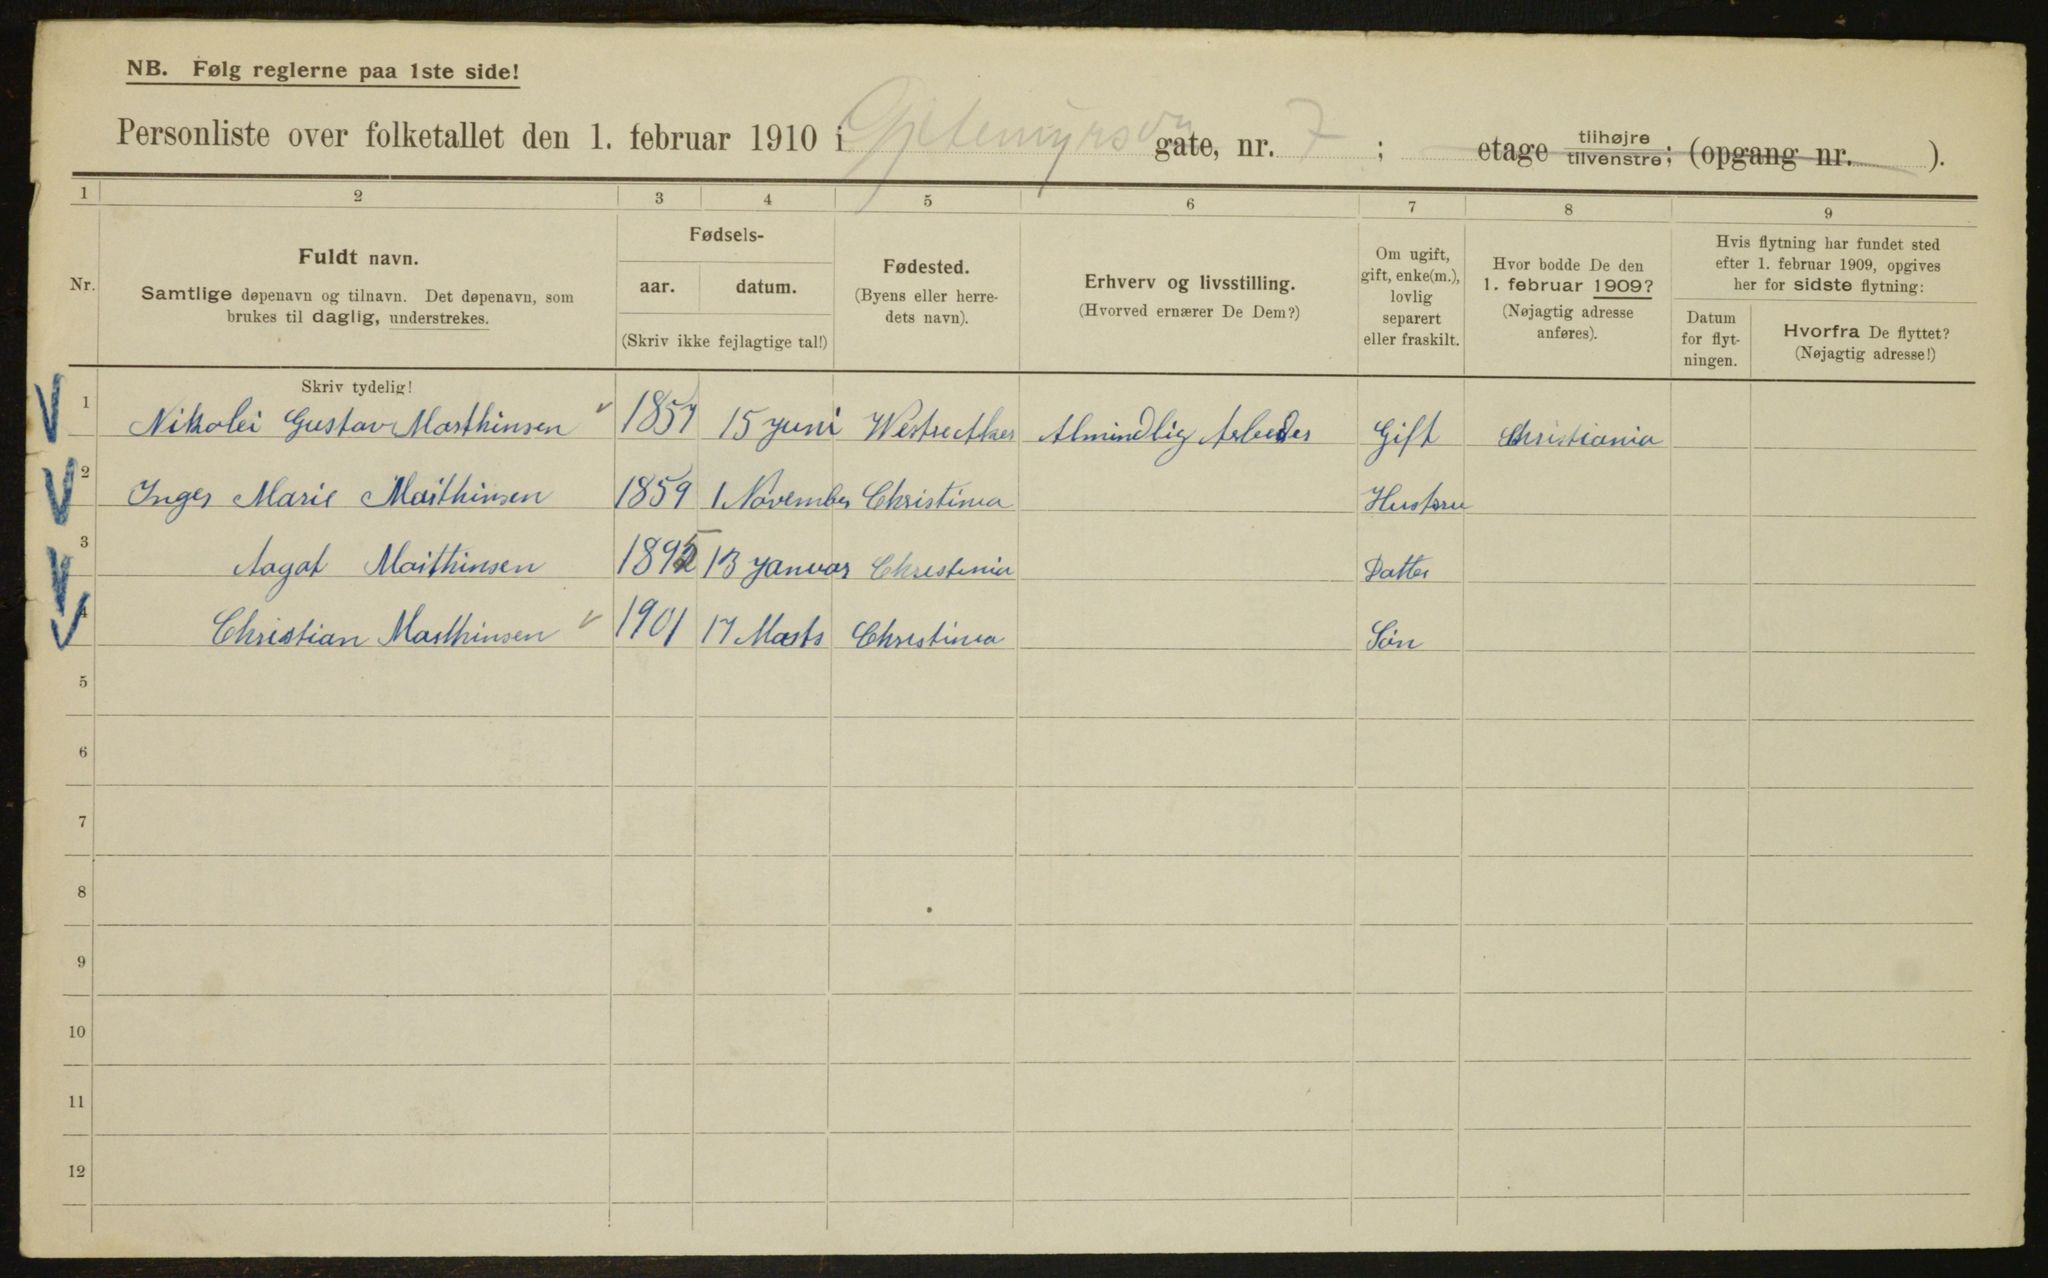 NB. Følg reglerne paa 1ste side!
Personliste over folketallet den 1. februar 1910 i Gjetemyrsvn gate, nr. 7 ; etage tilhøjre tilvenstre; (opgang nr. ).
1 2 3 4 5 6 7 8 9
Nr.
Fuldt navn.
Samtlige døpenavn og tilnavn. Det døpenavn, som
brukes til daglig, understrekes.
Fødsels-
aar. datum.
(Skriv ikke fejlagtige tal!)
Fødested.
(Byens eller herre-
dets navn).
Erhverv og livsstilling.
(Hvorved ernærer De Dem?)
Om ugift,
gift, enke(m.),
lovlig
separert
eller fraskilt.
Hvor bodde De den
1. februar 1909?
(Nøjagtig adresse
anføres).
Hvis flytning har fundet sted
efter 1. februar 1909, opgives
her for sidste flytning:
Datum
for flyt-
ningen.
Hvorfra De flyttet?
(Nøjagtig adresse!)
Skriv tydelig!
1 Nikolei Gustav Marthinsen 1857 15 Juni Westre Aker Almindlig Arbeider Gift Christiania
2 Inger Marie Marthinsen 1859 1 November Christinia Hustru
3 Aagot Marthinsen 1895 13 Januar Christinia Datter
4 Christian Marthinsen 1901 17 Marts Christinia Søn
5
6
7
8
9
10
11
12